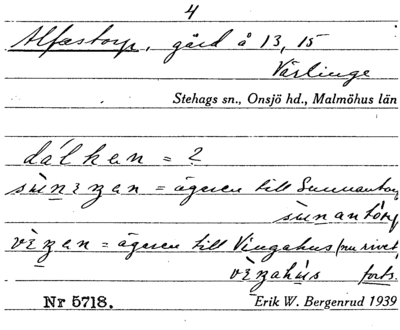 4
Alfastorp, gård å 13, 15
Värlinge
Stehags sn., Onsjö hd., Malmöhus län
dálken = ?
sùnezan = ägeren till Sunnantorp
sùnantòrp
vèzan = ägeren till Vingahus (nu rivet,
vèzahùs forts.
Nr 5718. Erik W. Bergenrud 1939